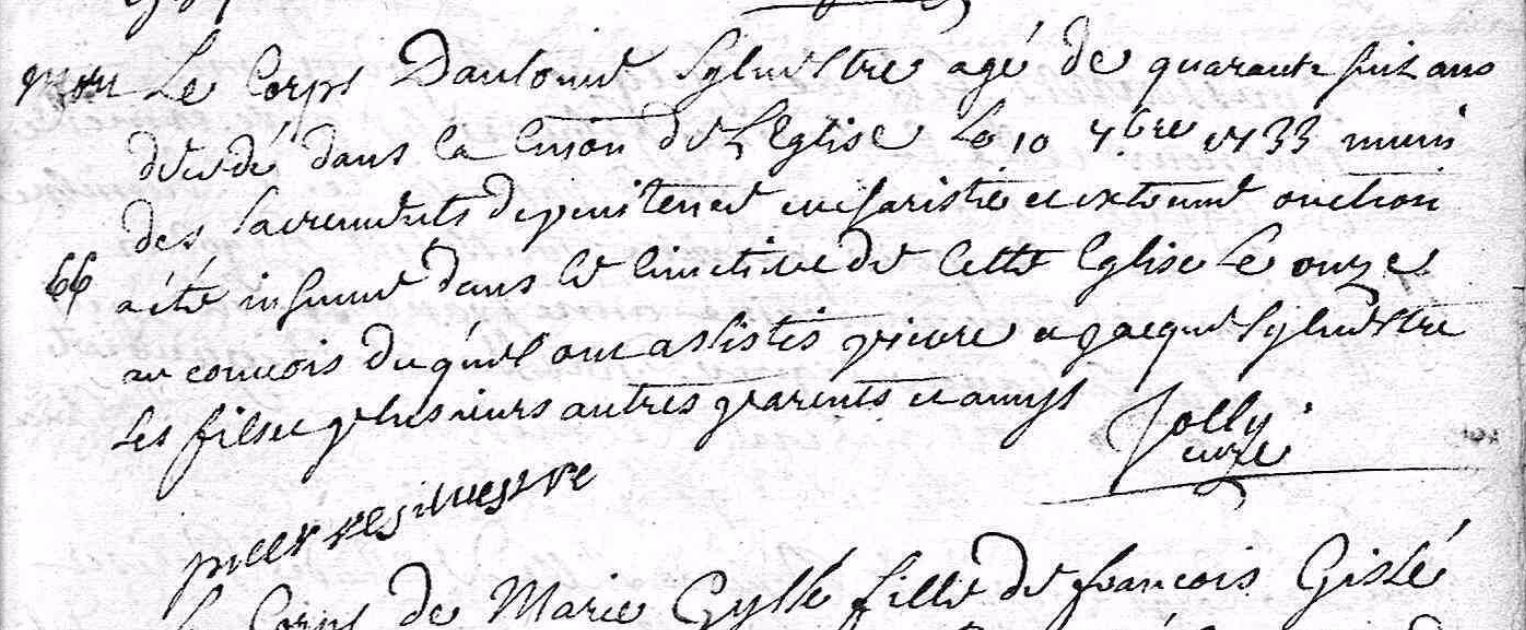 mor Le Corps Dantoine Sylvestre agé de quarante huit ans
decedé dans la Cmion de L'Eglise Le 10 7bre 1733 muni
des Sacrements de penitence eucharistie et extreme onction
66 a été inhumé dans le cimetiere de Cette Eglise Le onze
au convois duquel ont assistés pierre et jacque Sylvestre
ses fils et plusieurs autres parents et amys
Jolly
curé
pierre silvestre
Le Corps de Marie Gyslé fille de francois Gislé